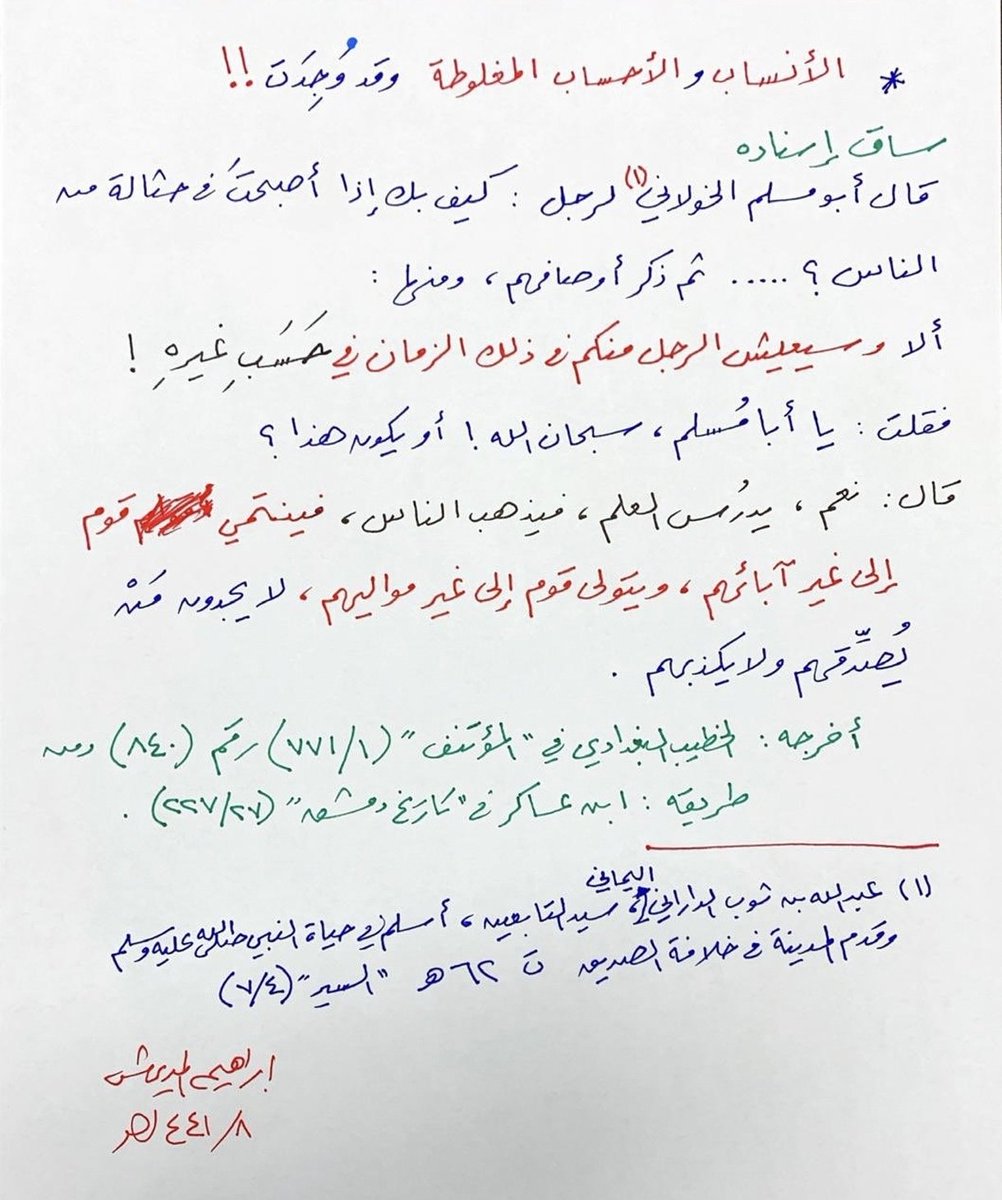 * الأنساب والأحساب المغلوطة وقد وُجِدَت !!
ساق إسناده
قال أبو مسلم الخولاني (١) لرجل : كيف بك إذا أصبحتَ في حثالة من
الناس ؟ ..... ثم ذكر أوصافهم ، ومنها :
ألا وسيعيش الرجل منكم في ذلك الزمان في حَسَبِ غيرِهِ !
فقلت : يا أبا مُسلم ، سبحان الله ! أو يكون هذا ؟
قال : نعم ، يدرُس العلم ، فيذهب الناس ، فينتمي قوم
إلى غير آبائهم ، ويتولى قوم إلى غير مواليهم ، لا يجدون مَنْ
يُصدِّقهم ولا يكذبهم .
أخرجه : الخطيب البغدادي في "المؤتنف" (٧٧١/١) رقم (٨٤٠) ومن
طريقه : ابن عساكر في "تاريخ دمشق" (٢٢٧/٢٧) .
(١) عبدالله بن ثوب الداراني اليماني ، سيد التابعين ، أسلم في حياة النبي صلى الله عليه وسلم
وقدم المدينة في خلافة الصديق ت ٦٢ هـ "السير" (٧/٤)
إبراهيم المديهش
٨/ ١٤٤١هـ